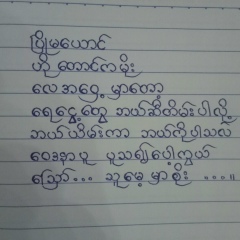 ပြိုမယောင်
ဟို တောင်က မိုး
လေ အဝှေ့ မှာတော့
ရေငွေ့တွေ ဘယ်ဆီတိမ်းပါလို့
ဘယ်ယိမ်းကာ ဘယ်ကိုပါသလဲ
ဝေဒနာပူ ပူသ၍ပေါ့ကွယ်
သြော် ... သူမေ့မှာစိုး ....။